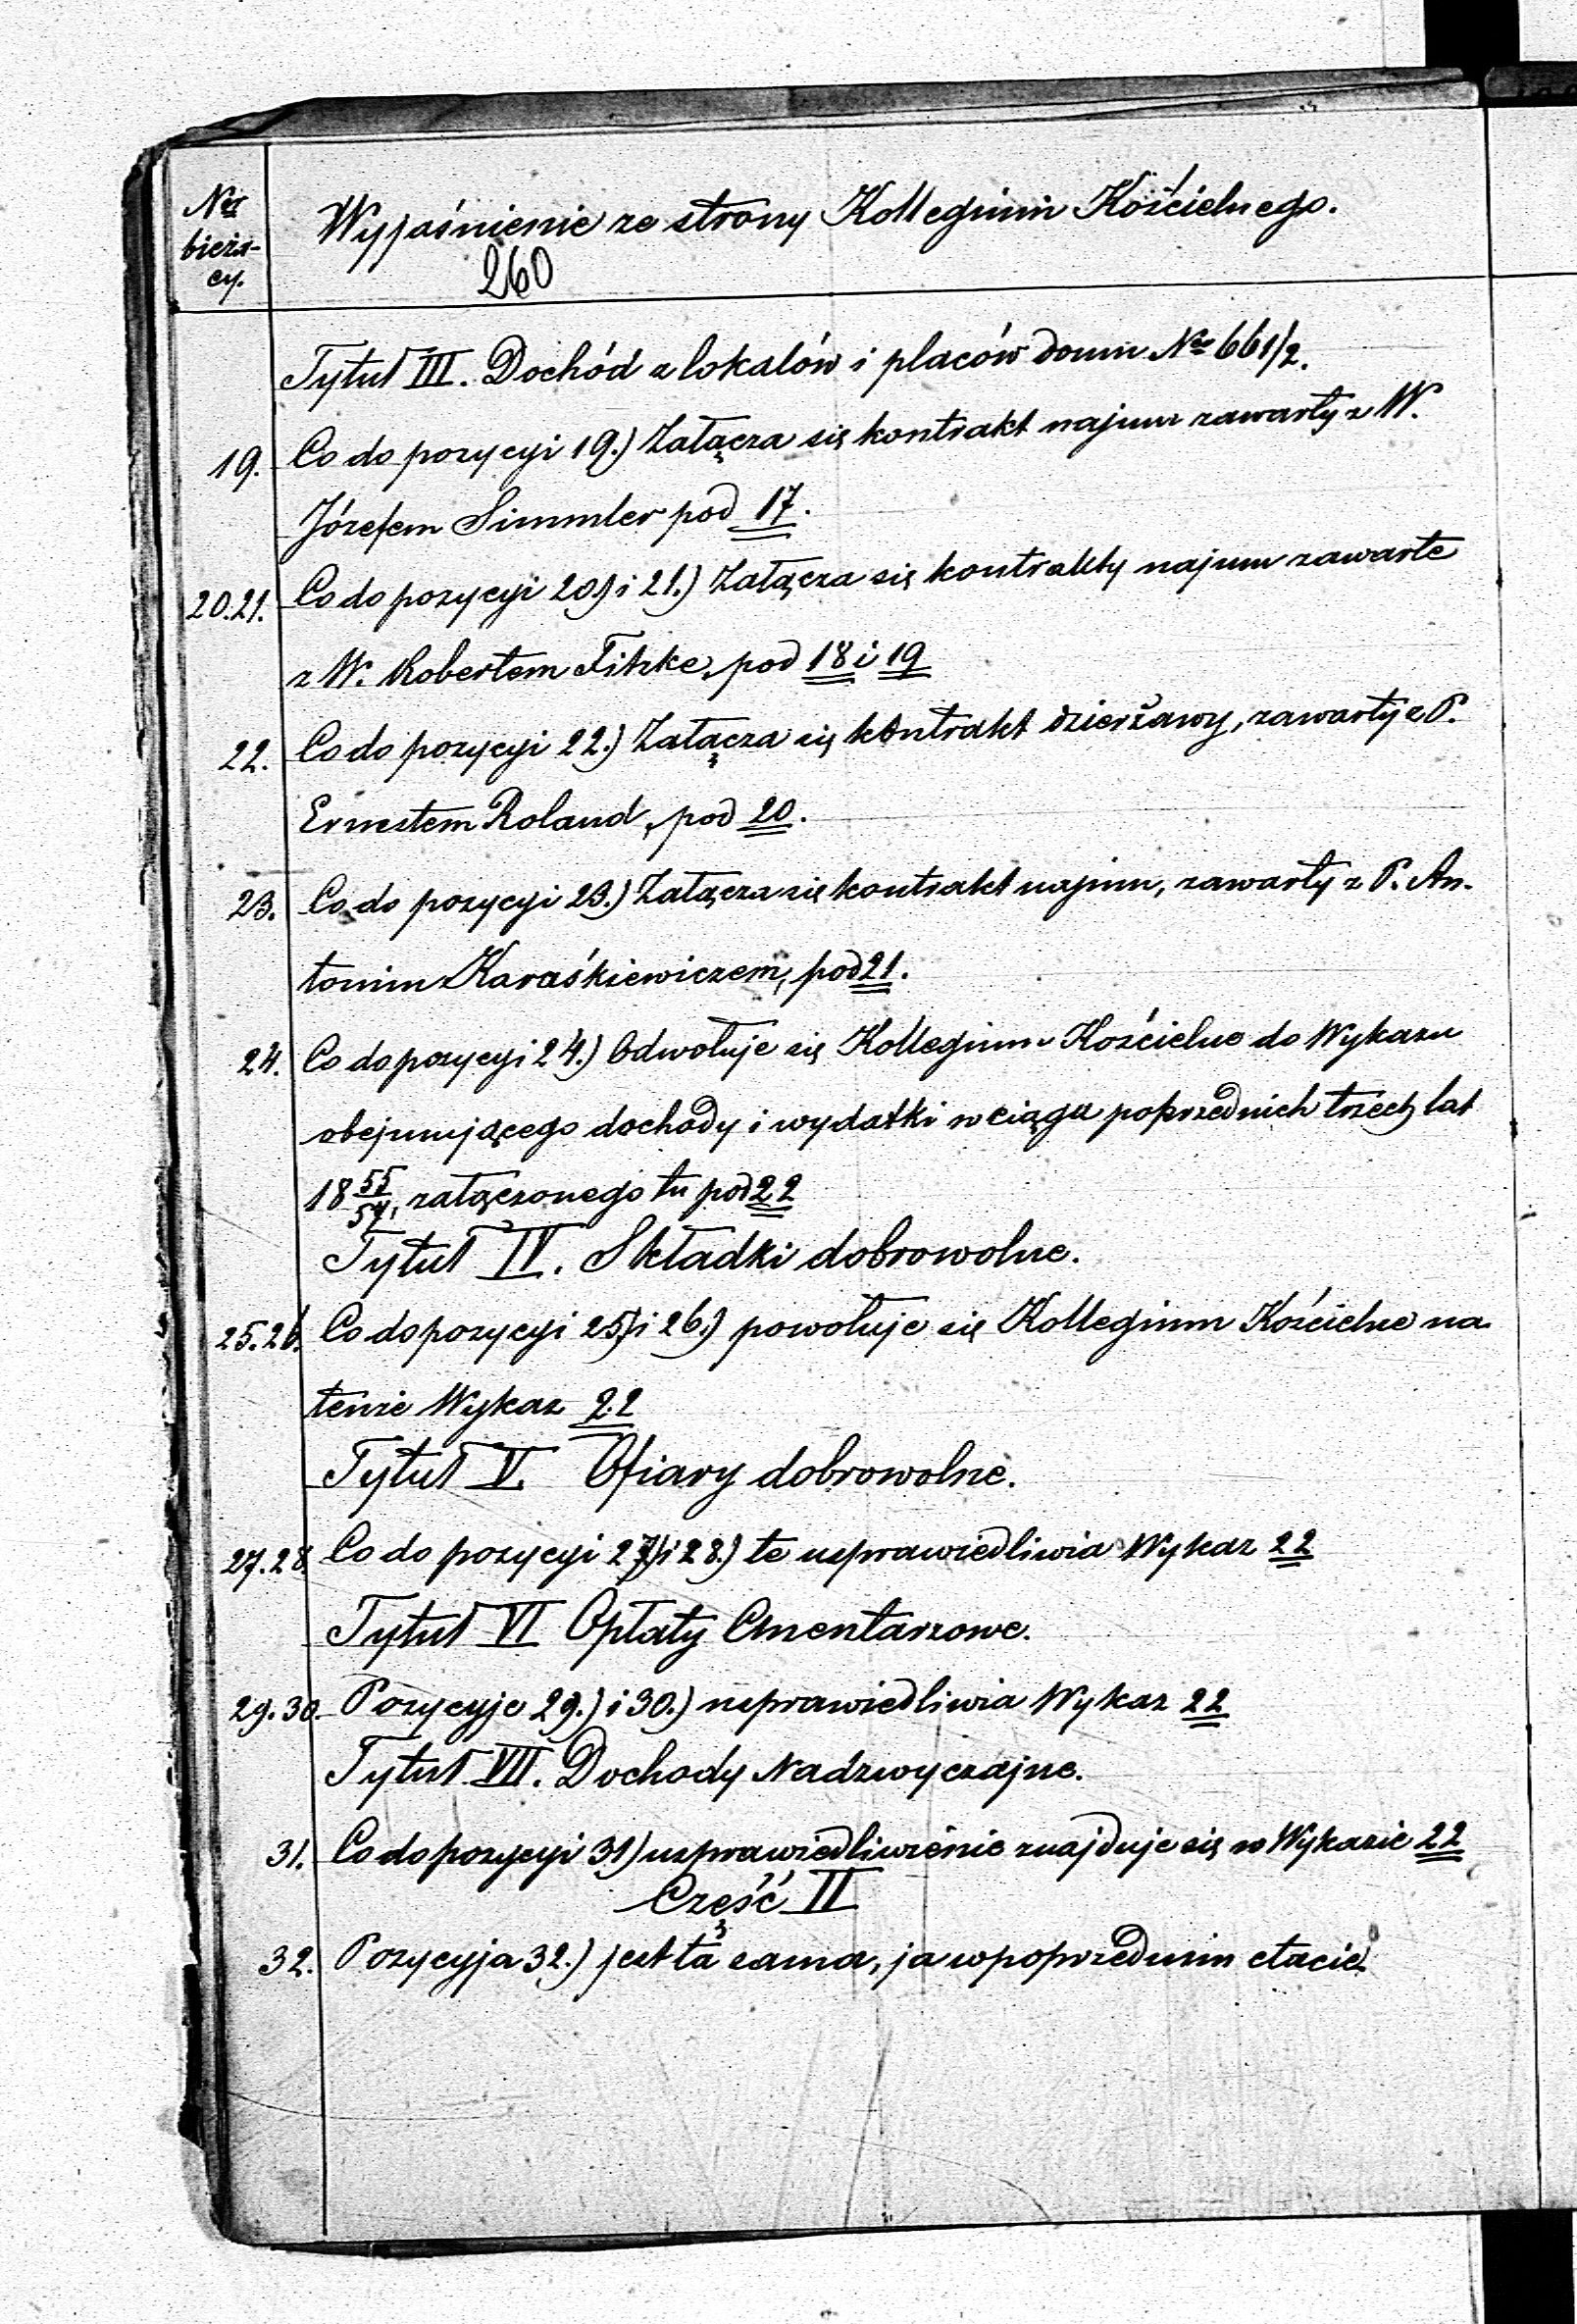 Ner bieżą-
cy.
Wyjaśnienie ze strony Kollegium Kościelnego.
260
Tytuł III. Dochód z lokalów i placów domu Nro 661/2.
19. Co do pozycyi 19.) Załącza się kontrakt najmu zawarty z W.
Józefem Simmler pod 17.
20.21. Co do pozycyi 20.) i 21.) Załącza się kontrakty najmu zawarte
z W. Robertem Fitzke, pod 18 i 19
22. Co do pozycyi 22.) Załącza się kontrakt dzierżawy, zawarty z P.
Ernestem Roland, pod 20.
23. Co do pozycyi 23.) Załącza się kontrakt najmu, zawarty z P. An-
tonim Karaśkiewiczem, pod 21.
24. Co do pozycyi 24.) Odwołuje się Kollegium Kościelne do Wykazu
obejmującego dochody i wydatki w ciągu poprzednich trzech lat
18 55/57, załączonego tu pod 22
Tytuł IV. Składki dobrowolne.
25.26. Co do pozycyi 25.) i 26.) powołuje się Kollegium Kościelne na
tenże Wykaz 22
Tytuł V. Ofiary dobrowolne.
27.28. Co do pozycyi 27.) i 28.) te usprawiedliwia Wykaz 22
Tytuł VI Opłaty Cmentarzowe.
29.30. Pozycyje 29.) i 30.) usprawiedliwia Wykaz 22
Tytuł VII. Dochody Nadzwyczajne.
31. Co do pozycyi 31) usprawiedliwienie znajduje się w Wykazie 22
Część II
32. Pozycyja 32.) jest ta sama, ja w poprzednim etacie.